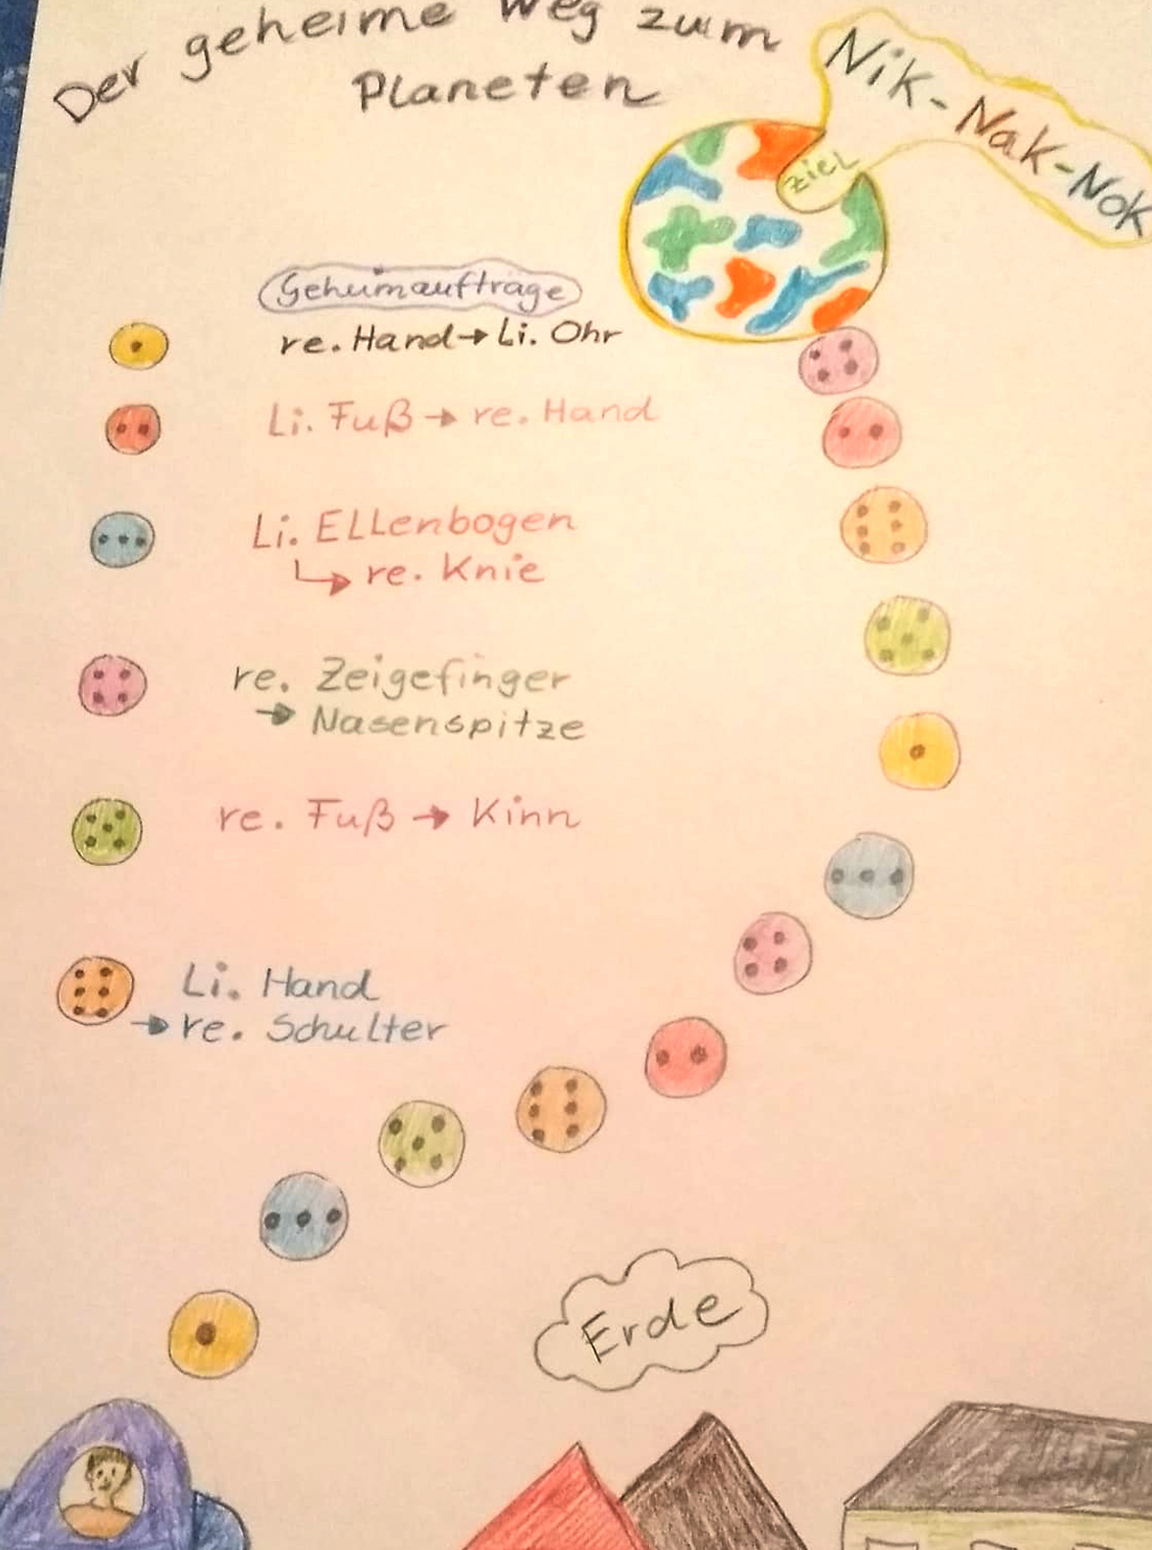 Der geheime Weg zum
Planeten
Nik-Nak-Nok
Ziel
Geheimaufträge
re. Hand → Li. Ohr
Li. Fuß → re. Hand
Li. Ellenbogen
↳ re. Knie
re. Zeigefinger
→ Nasenspitze
re. Fuß → Kinn
Li. Hand
→ re. Schulter
Erde